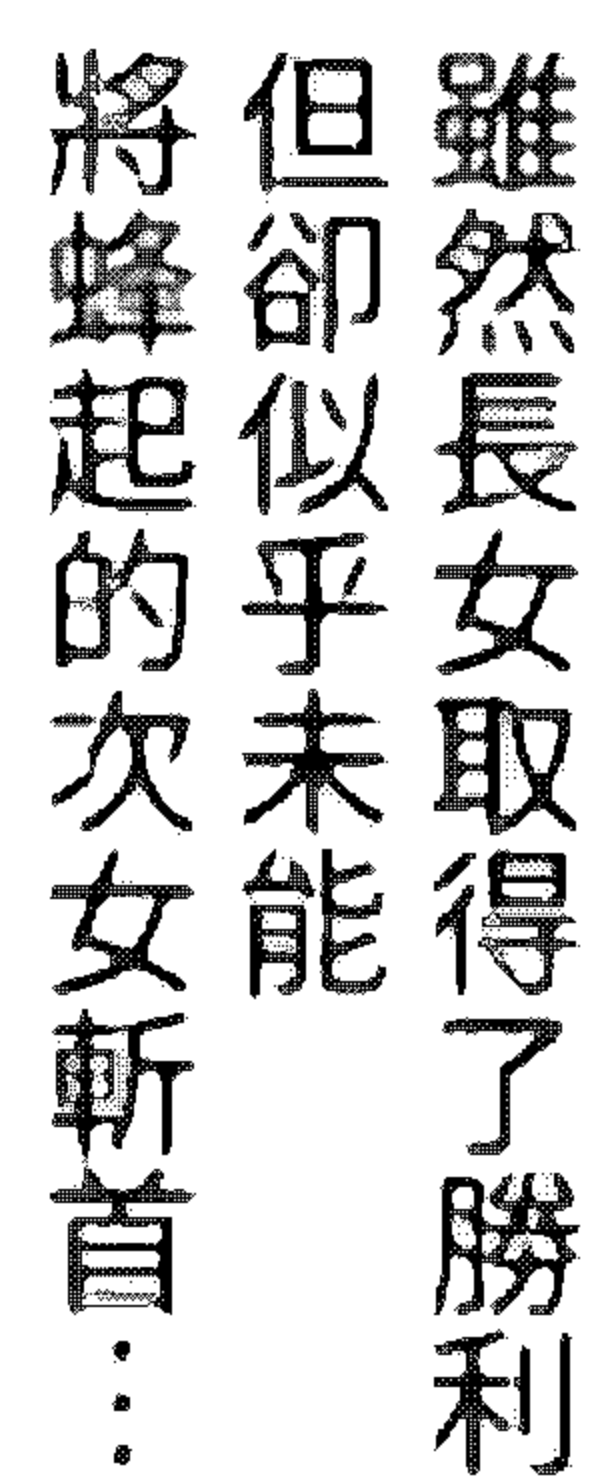 雖然長女取得了勝利
但卻似乎未能
將蜂起的次女斬首…